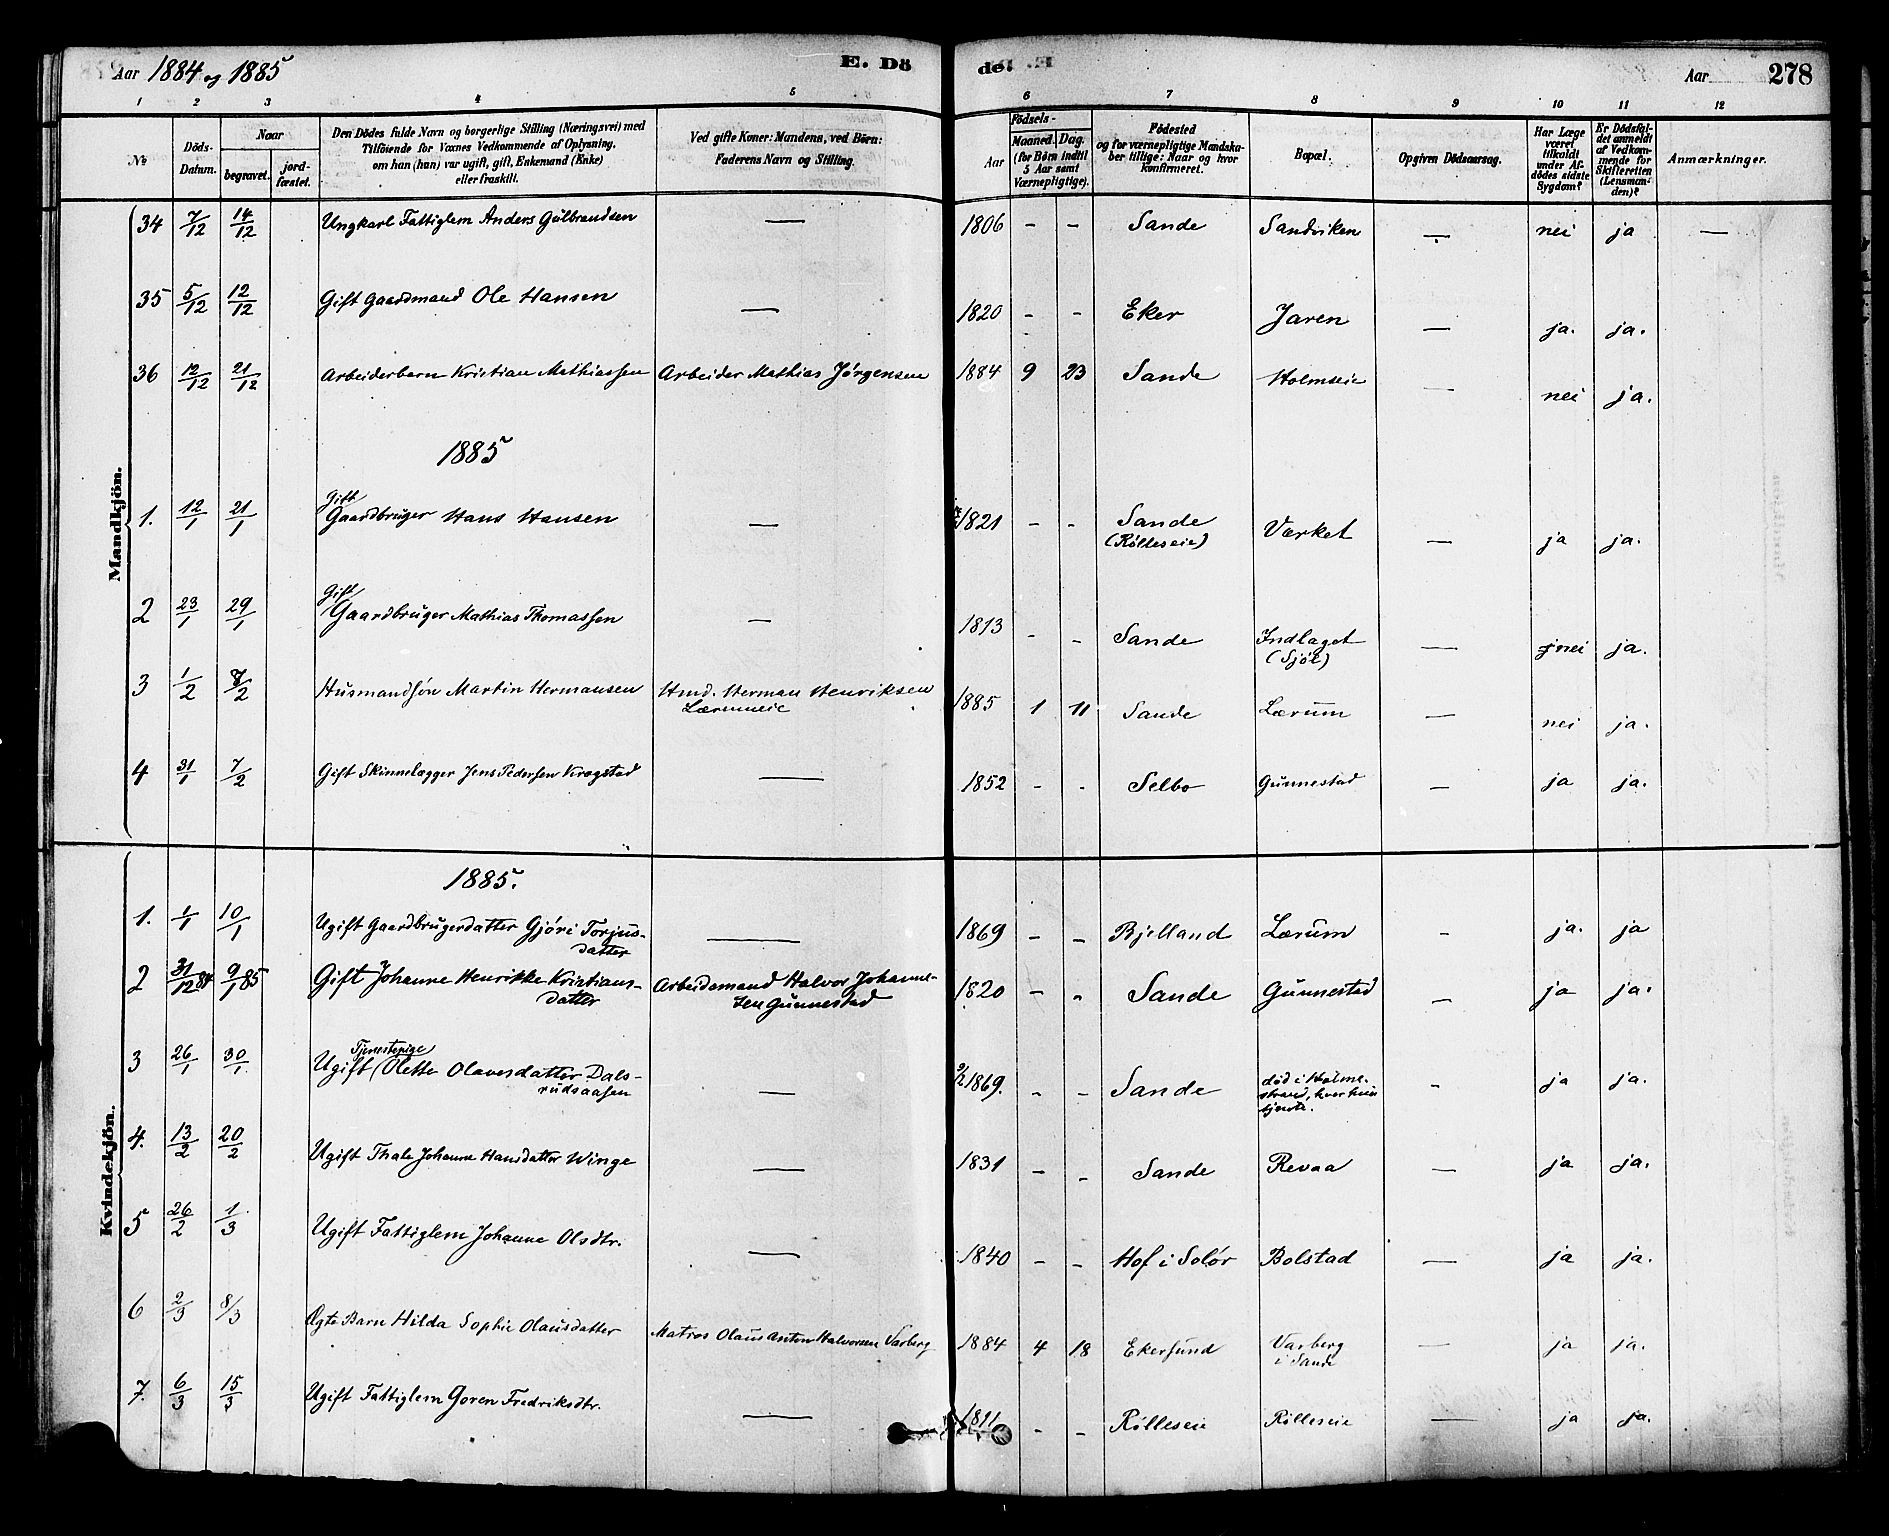 Aar 1884 og 1885
E. Dö
de.
Aar
278
1 2 3 4 5 6 7 8 9 10 11 12
No
Döds-Datum.
Naar
begravet.
jord-fæstet.
Den Dödes fulde Navn og borgerlige Stilling (Næringsvei) med
Tilföiende for Voxnes Vedkommende af Oplysning,
om han (hun) var ugift, gift, Enkemand (Enke)
eller fraskilt.
Ved gifte Koner: Mandens, ved Börn:
Faderens Navn og Stilling.
Födsels-
Aar
Maaned. Dag.
(for Börn indtil
5 Aar samt
Værnepligtige).
Födested
og for værnepligtige Mandska-
ber tillige: Naar og hvor
konfirmeret.
Bopæl.
Opgiven Dödsaarsag.
Har Læge
været
tilkaldt
under Af-
dödes sidste
Sygdom?
Er Dödsfal-
det anmeldt
af Vedkom-
mende for
Skifteretten
(Lensman-
den)?
Anmærkninger.
Mandkjön.
34 7/12 14/12 Ungkarl Fattiglem Anders Gulbrandsen — 1806 - - Sande Sandviken — nei ja —
35 5/12 12/12 Gift Gaardmand Ole Hansen — 1820 - - Eker Jaren — ja. ja.
36 12/12 21/12 Arbeiderbarn Kristian Mathiassen Arbeider Mathias Jørgensen 1884 9 23 Sande Holmseie — nei ja.
1885
Gift
1. 12/1 21/1 Gaardbruger Hans Hansen — 1821 - - Sande Værket — ja ja.
(Rølleseie)
Gift
2 23/1 29/1 Gaardbruger Mathias Thomassen — 1813 - - Sande Indlaget — nei ja.
3 1/2 8/2 Husmandsøn Martin Hermansen Hmd. Herman Henriksen 1885 1 11 Sande Lærum — nei ja.
4 31/1 7/2 Gift Skinnelægger Jens Pedersen Krogstad — 1852 - - Selbo Gunnestad — ja ja.
Kvindekjön.
1885.
1. 1/1 10/1 Ugift Gaardbrugerdatter Gjøri Torjus-
datter — 1869 - - Bjelland Lærum - ja. ja
2 31/12 84 9/1 85 Gift Johanne Henrikke Kristians-
datter Arbeidsmand Halvor Johanne-
sen Gunnestad 1820 - - Sande Gunnestad — ja ja.
Tjenestepige
3 26/1 30/1 Ugift Olette Olavesdatter Dals-
rudsaasen — 9/2 1869. - - Sande død i Holme-
strand, hvor hun
tjente. - ja ja.
4. 13/2 20/2 Ugift Thale Johanne Hansdatter Winge — 1831 - - Sande Revaa — ja ja.
5 26/2 1/3 Ugift Fattiglem Johanne Olsdtr. — 1840 - - Hof i Solør Bolstad — ja ja.
6 2/3 8/3 Ægte Barn Hilda Sophie Olausdatter Matros Olaus Anton Halvorsen Varberg 1884 4 18 Ekersund Varberg
i Sande — ja ja.
7. 6/3 15/3 Ugift Fattiglem Goren Fredriksdtr. — 1811 - - Rølleseie Rølleseie — ja ja.